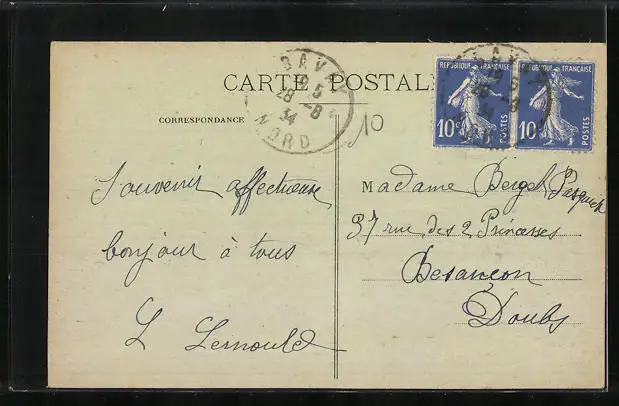 CARTE POSTALE
BAVAY
19 5
28 -8
34
NORD
10
RÉPUBLIQUE FRANÇAISE
10c POSTES
RÉPUBLIQUE FRANÇAISE
10c POSTES
CORRESPONDANCE
Souvenir affectueux
bonjour à tous
L Lernould
Madame Berget
37 rue des 2 Princesses
Besançon
Doubs